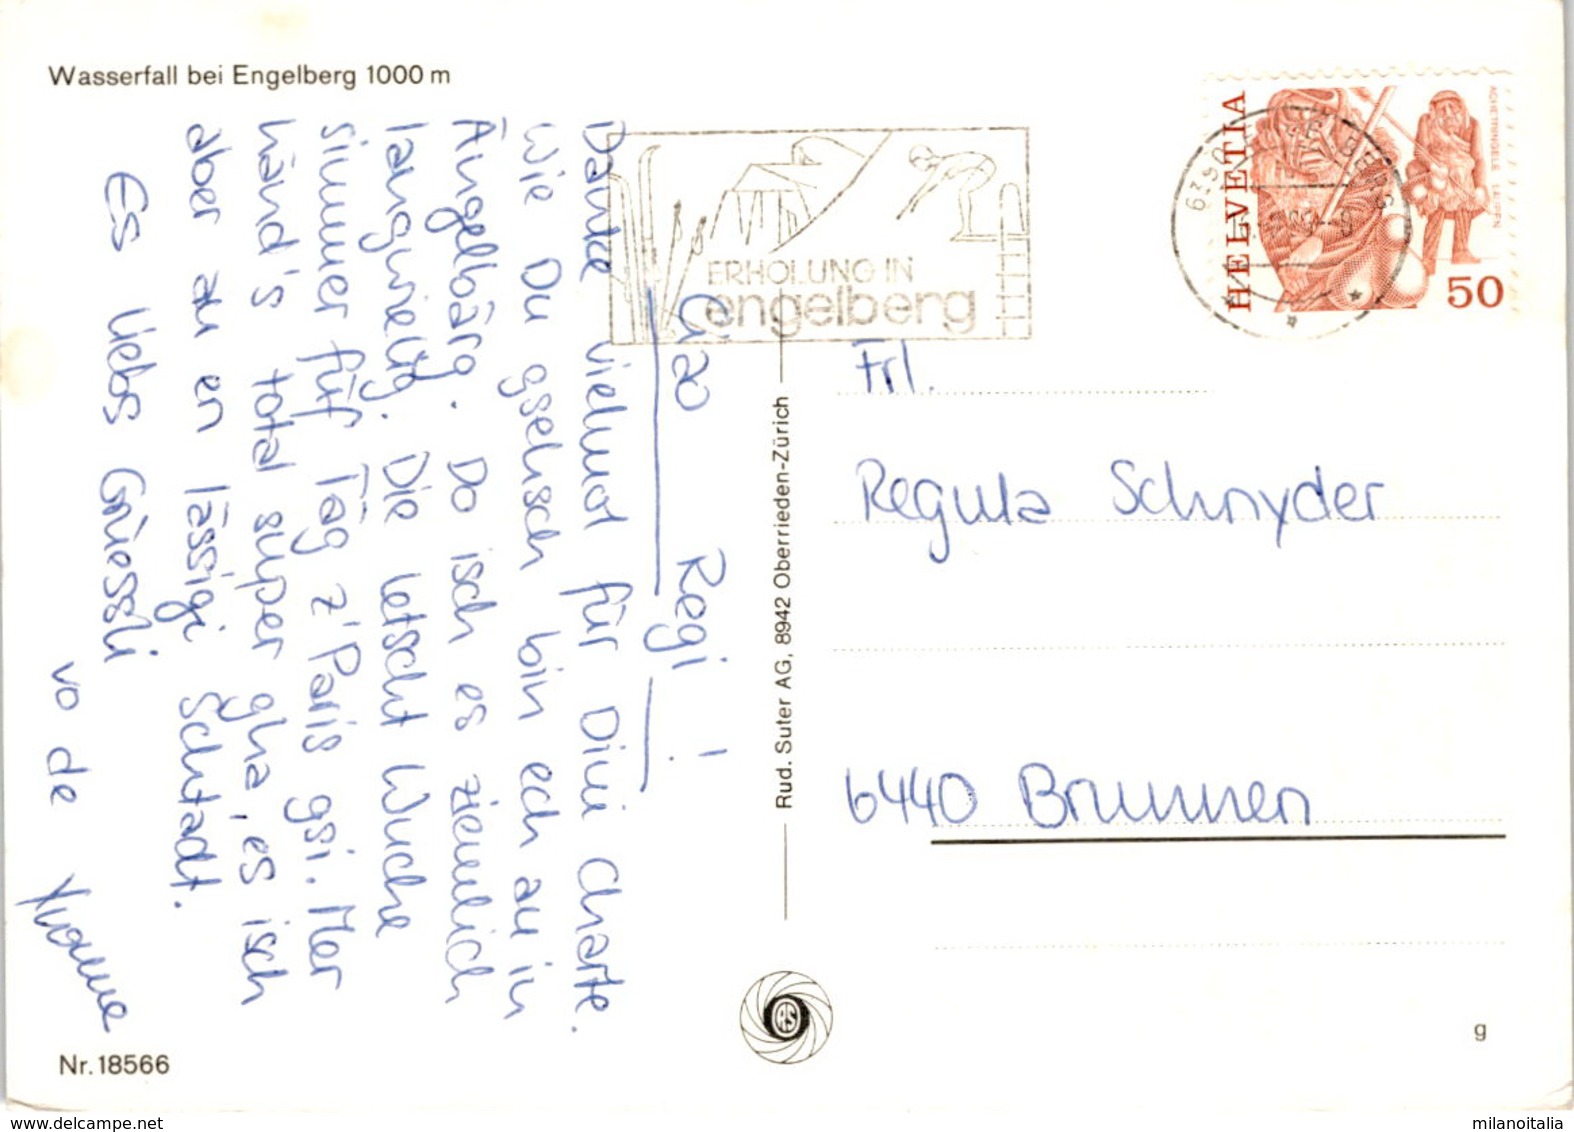 Wasserfall bei Engelberg 1000 m
Ciao Regi!
Danke vielmol für Dini Charte.
Wie Du gsehsch bin ech au in
Ängelbärg. Do isch es ziemlich
langwielig. Die letscht Wuche
simmer füf Täg z'Paris gsi. Mer
händ's total super gha, es isch
aber au en lässigi Schtadt.
Es liebs Grüessli
vo de Yvonne
Nr. 18566
Rud. Suter AG, 8942 Oberrieden-Zürich
ERHOLUNG IN
engelberg
6390 ENGELBERG
HELVETIA
50
Frl.
Regula Schnyder
6440 Brunnen
g
milanoitalia